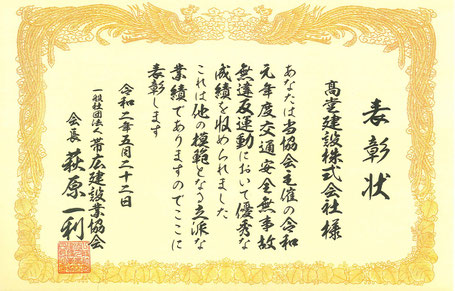 表彰状
高堂建設株式会社 様
あなたは当協会主催の令和
元年度交通安全無事故
無違反運動において優秀な
成績を収められました
これは他の模範となる立派な
業績でありますのでここに
表彰します
令和二年五月二十二日
一般社団法人 帯広建設業協会
会長 萩原一利